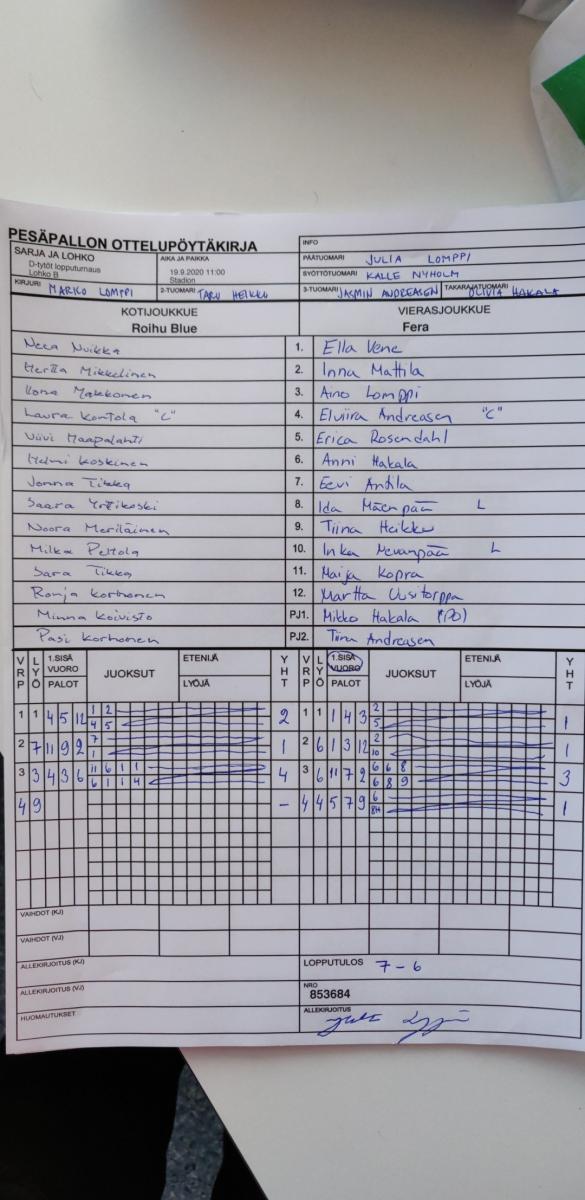 PESÄPALLON OTTELUPÖYTÄKIRJA
INFO
SARJA JA LOHKO
D-tytöt lopputurnaus
Lohko B
AIKA JA PAIKKA
19.9.2020 11:00
Stadion
PÄÄTUOMARI JULIA LOMPPI
SYÖTTÖTUOMARI KALLE NYHOLM
KIRJURI MARKO LOMPPI
2-TUOMARI TARU HEIKKU
3-TUOMARI JASMIN ANDREASEN
TAKARAJATUOMARI OLIVIA HAKALA
KOTIJOUKKUE VIERASJOUKKUE
Roihu Blue Fera
Neea Nuikka 1. Ella Vene
Mertta Mikkelinen 2. Inna Mattila
Ilona Makkonen 3. Aino Lomppi
Laura Kontola "C" 4. Elviira Andreasen "C"
Viivi Haapalahti 5. Erica Rosendahl
Helmi Koskinen 6. Anni Hakala
Jonna Tikka 7. Eevi Antila
Saara Yrttikoski 8. Ida Mäenpää L
Noora Meriläinen 9. Tiina Heikku
Milka Peltola 10. Inka Nevanpää L
Sara Tikka 11. Maija Kopra
Ronja Korhonen 12. Martta Uusitorppa
Minna Koivisto PJ1. Mikko Hakala (PO)
Pasi Korhonen PJ2. Tiina Andreasen
VRP LYÖ 1.SISÄ VUORO PALOT JUOKSUT ETENIJÄ LYÖJÄ YHT VRP LYÖ 1.SISÄ VUORO PALOT JUOKSUT ETENIJÄ LYÖJÄ YHT
1 1 4 5 12 1 2 2 1 1 1 4 3 2 1
4 5 5
2 7 11 9 2 7 1 2 6 1 3 12 2 1
1 10
3 3 4 3 6 11 6 1 1 4 3 6 11 7 2 6 6 8 3
6 1 1 4 6 8 9
4 9 – 4 4 5 7 9 6 1
8H
VAIHDOT (KJ)
VAIHDOT (VJ)
ALLEKIRJOITUS (KJ) LOPPUTULOS 7 - 6
ALLEKIRJOITUS (VJ) NRO
853684
HUOMAUTUKSET ALLEKIRJOITUS